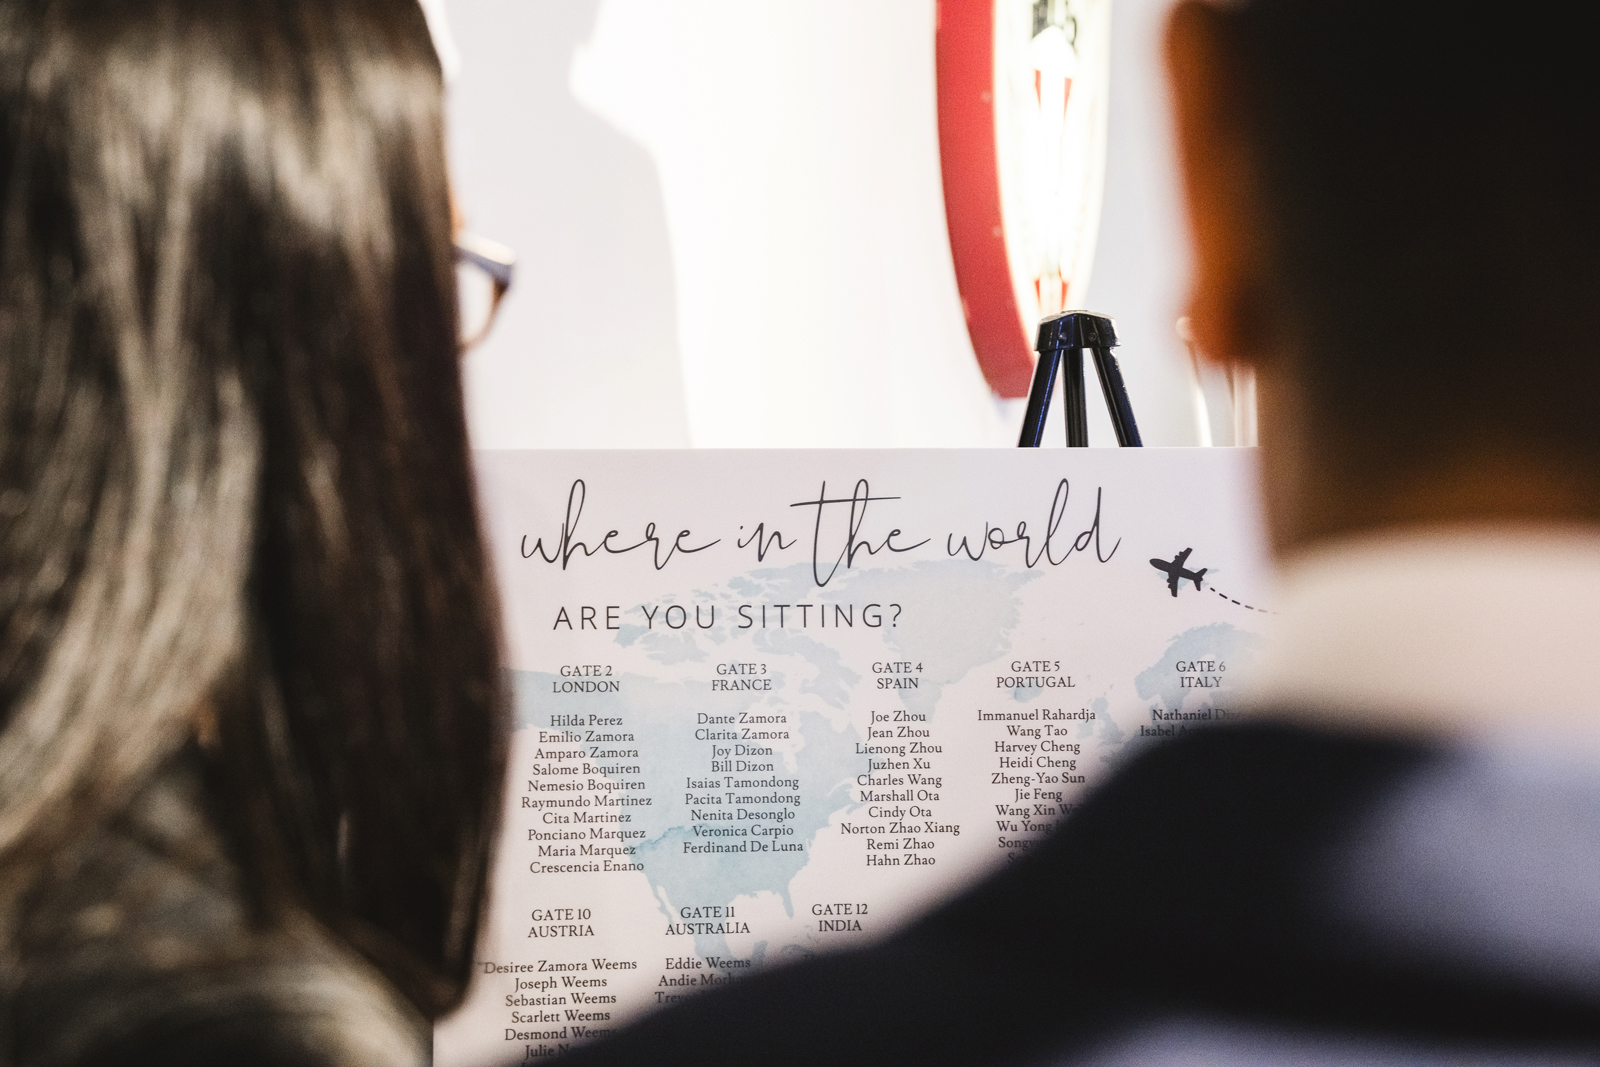 where in the world
ARE YOU SITTING?
GATE 2
LONDON
Hilda Perez
Emilio Zamora
Amparo Zamora
Salome Boquiren
Nemesio Boquiren
Raymundo Martinez
Cita Martinez
Ponciano Marquez
Maria Marquez
Crescencia Enano
GATE 3
FRANCE
Dante Zamora
Clarita Zamora
Joy Dizon
Bill Dizon
Isaias Tamondong
Pacita Tamondong
Nenita Desonglo
Veronica Carpio
Ferdinand De Luna
GATE 4
SPAIN
Joe Zhou
Jean Zhou
Lienong Zhou
Juzhen Xu
Charles Wang
Marshall Ota
Cindy Ota
Norton Zhao Xiang
Remi Zhao
Hahn Zhao
GATE 5
PORTUGAL
Immanuel Rahardja
Wang Tao
Harvey Cheng
Heidi Cheng
Zheng-Yao Sun
Jie Feng
Wang Xin
Wu Yong
GATE 6
ITALY
Nathaniel
Isabel
GATE 10
AUSTRIA
Desiree Zamora Weems
Joseph Weems
Sebastian Weems
Scarlett Weems
Desmond Weems
Julie
GATE 11
AUSTRALIA
Eddie Weems
Andie
GATE 12
INDIA